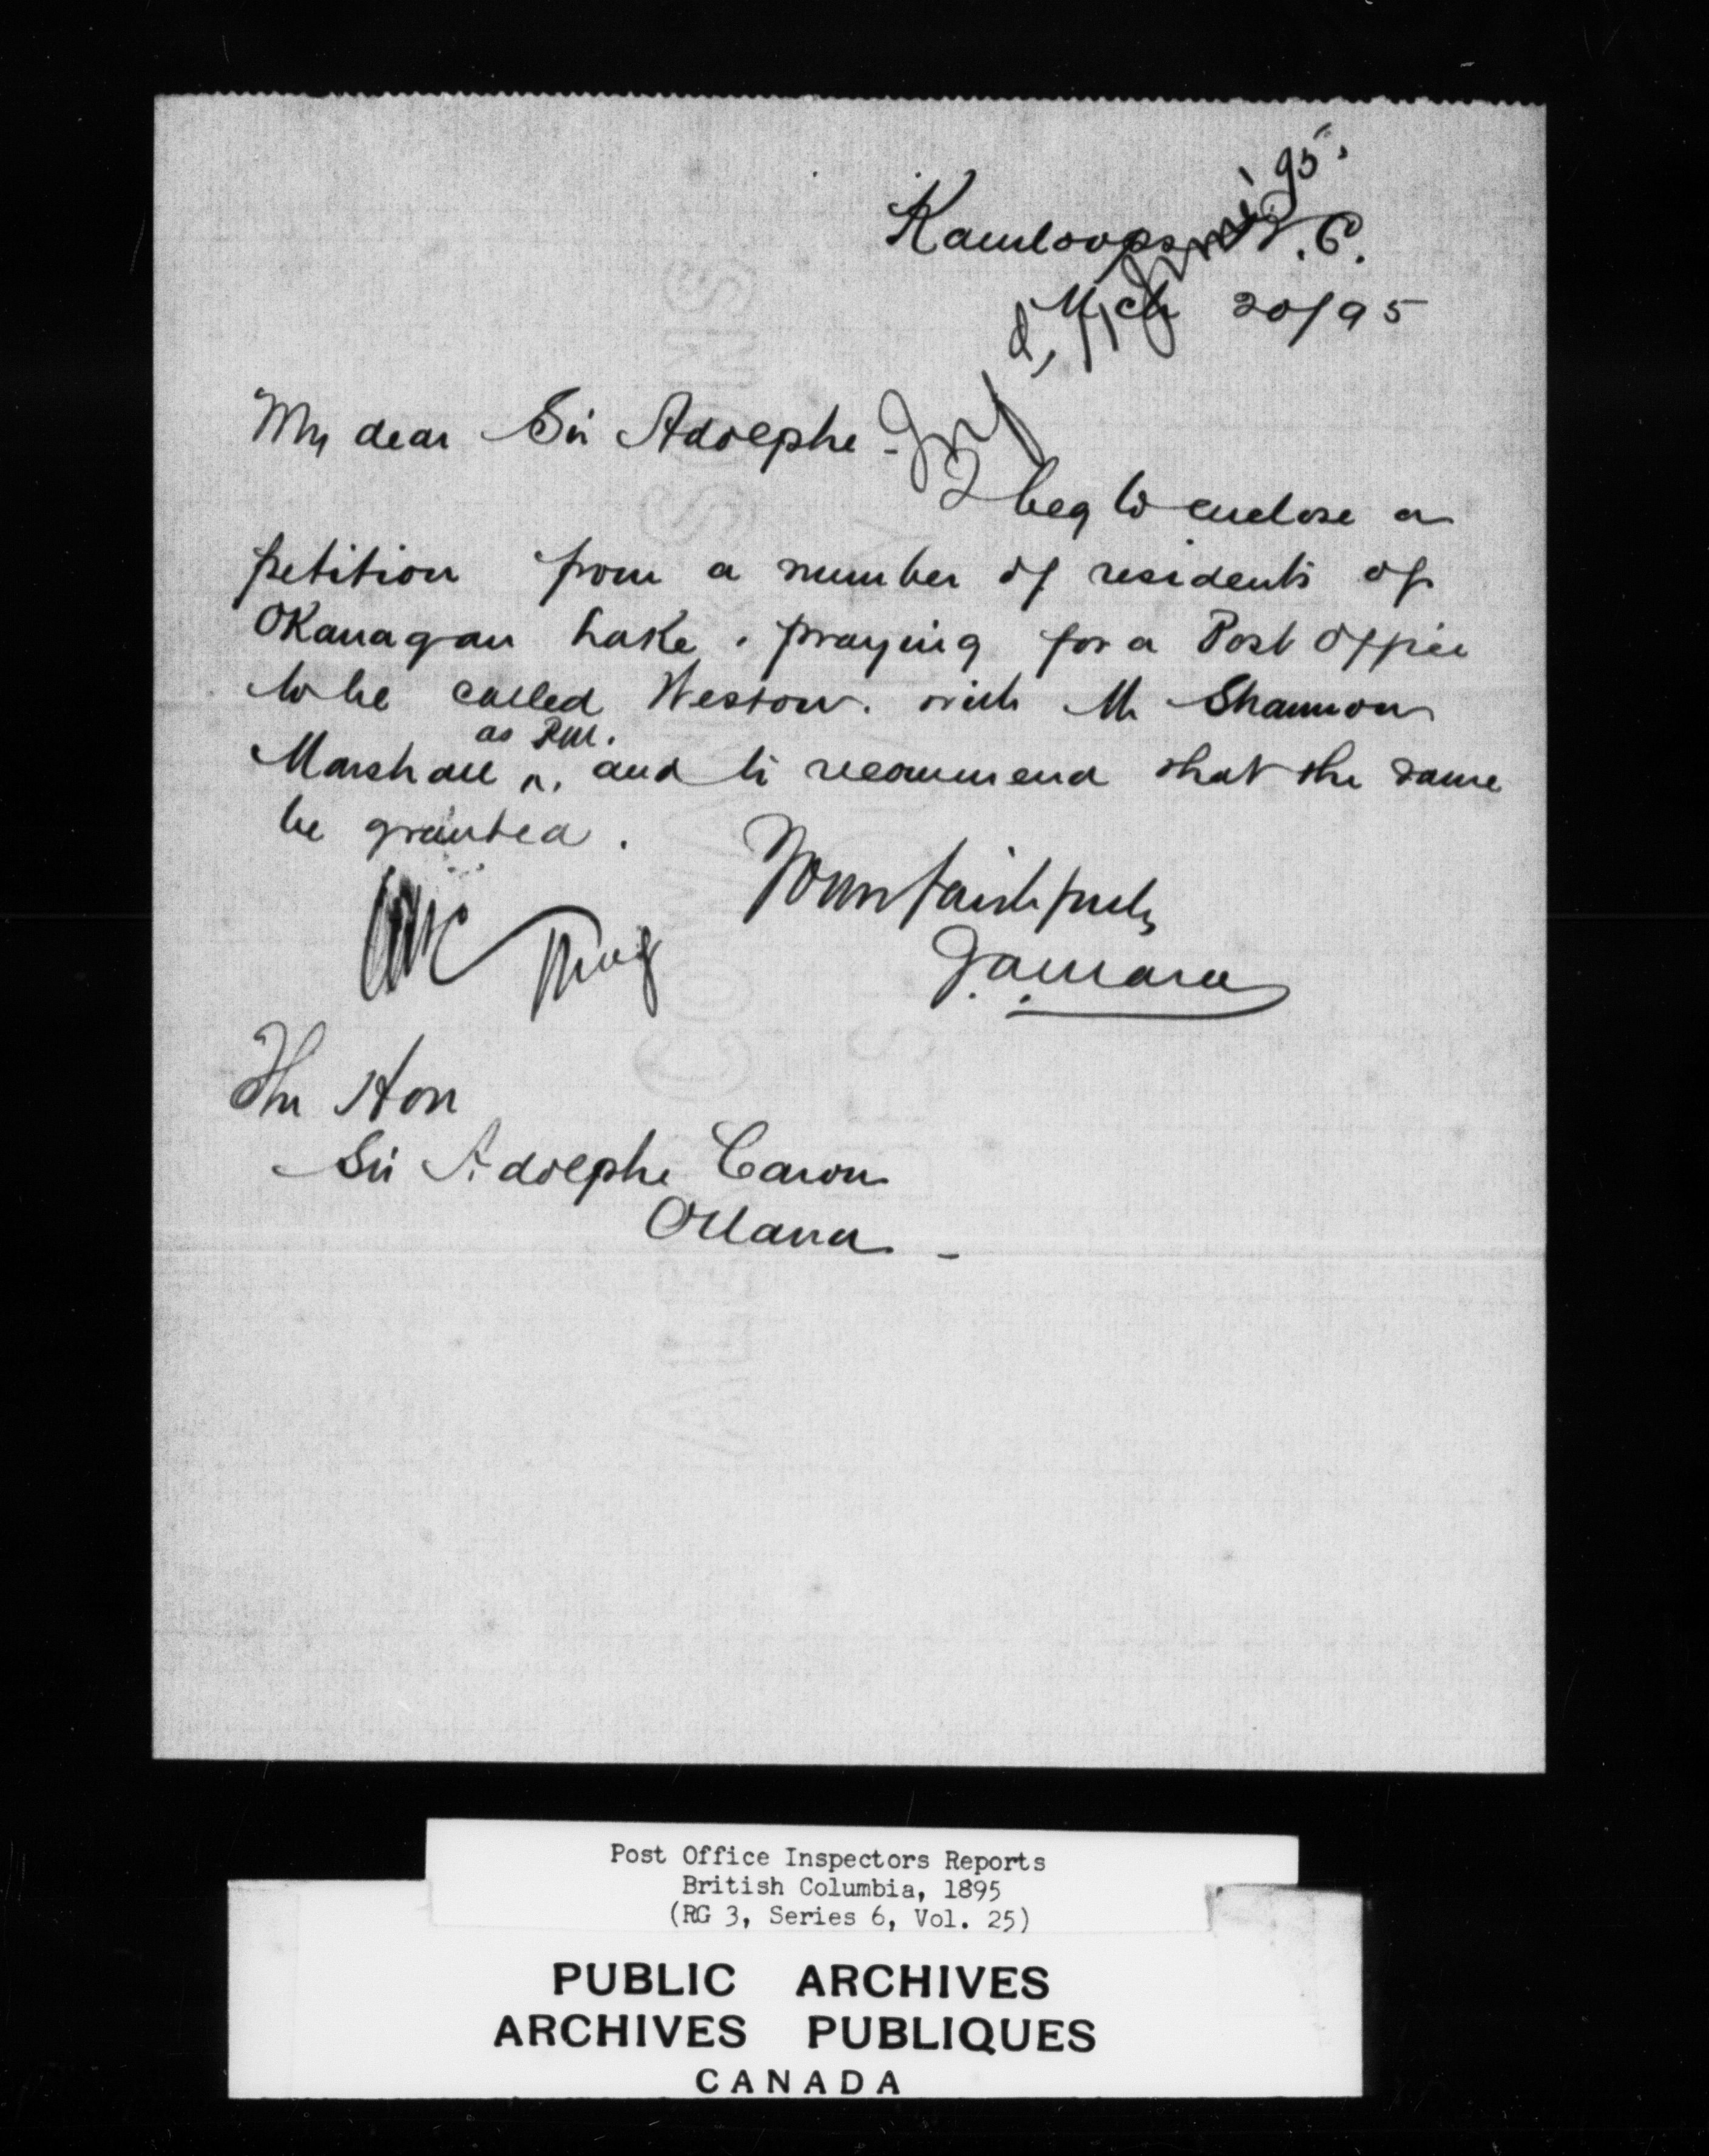 Kamloops B.C.
Mch 20/95
My dear Sir Adolphe -
I beg to enclose a
petition from a number of residents of
Okanagan Lake, praying for a Post Office
to be called Weston. with Mr Shannon
as P.M.
Marshall ^, and to recommend that the same
be granted.
Yours faithfully
J.A. Mara
The Hon
Sir Adolphe Caron
Ottawa -
Post Office Inspectors Reports
British Columbia, 1895
(RG 3, Series 6, Vol. 25)
PUBLIC ARCHIVES
ARCHIVES PUBLIQUES
CANADA